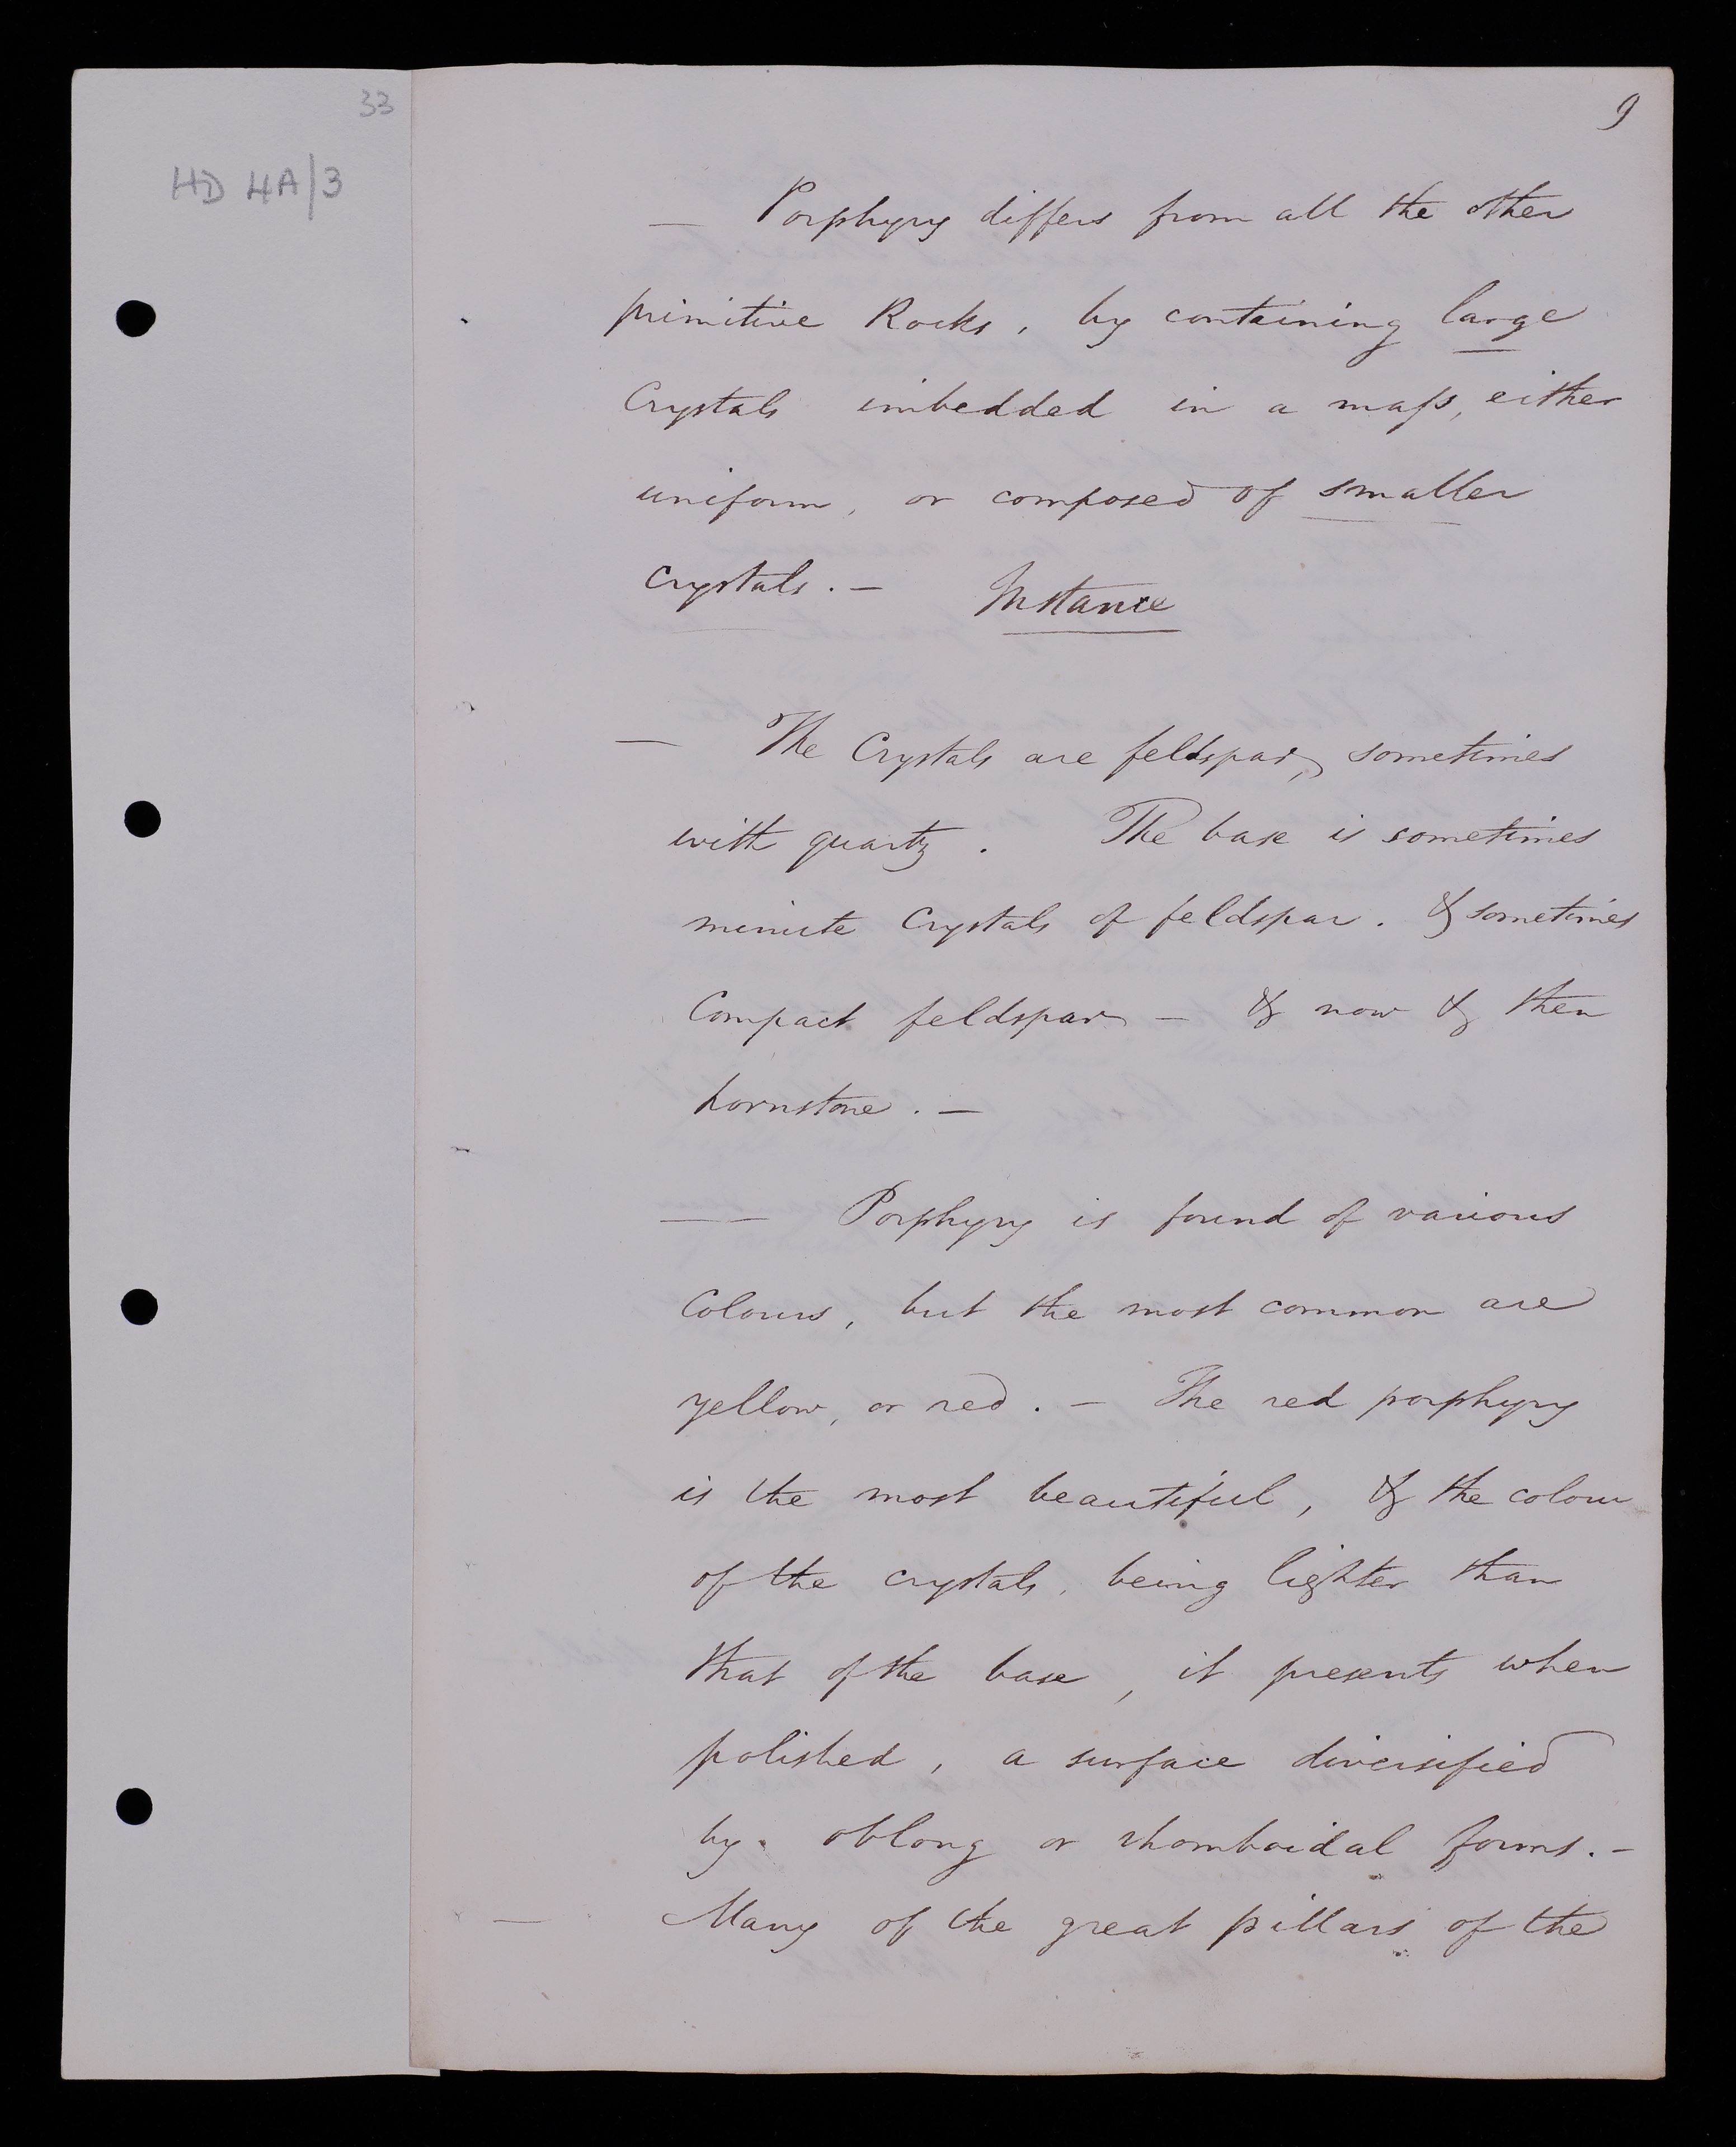 33
HD 4A/3
9
— Porphyry differs from all the other
primitive Rocks, by containing large
Crystals imbedded in a maſs, either
uniform, or composed of smaller
crystals. — Instance
— The Crystals are feldspar, sometimes
with quartz. The base is sometimes
minute Crystals of feldspar. & sometimes
Compact feldspar — & now & then
hornstone. —
— — Porphyry is found of various
Colours, but the most common are
yellow, or red. — The red porphyry
is the most beautiful, & the colour
of the crystals, being lighter than
that of the base, it presents when
polished, a surface diversified
by oblong or rhomboidal forms. —
— Many of the great pillars of the